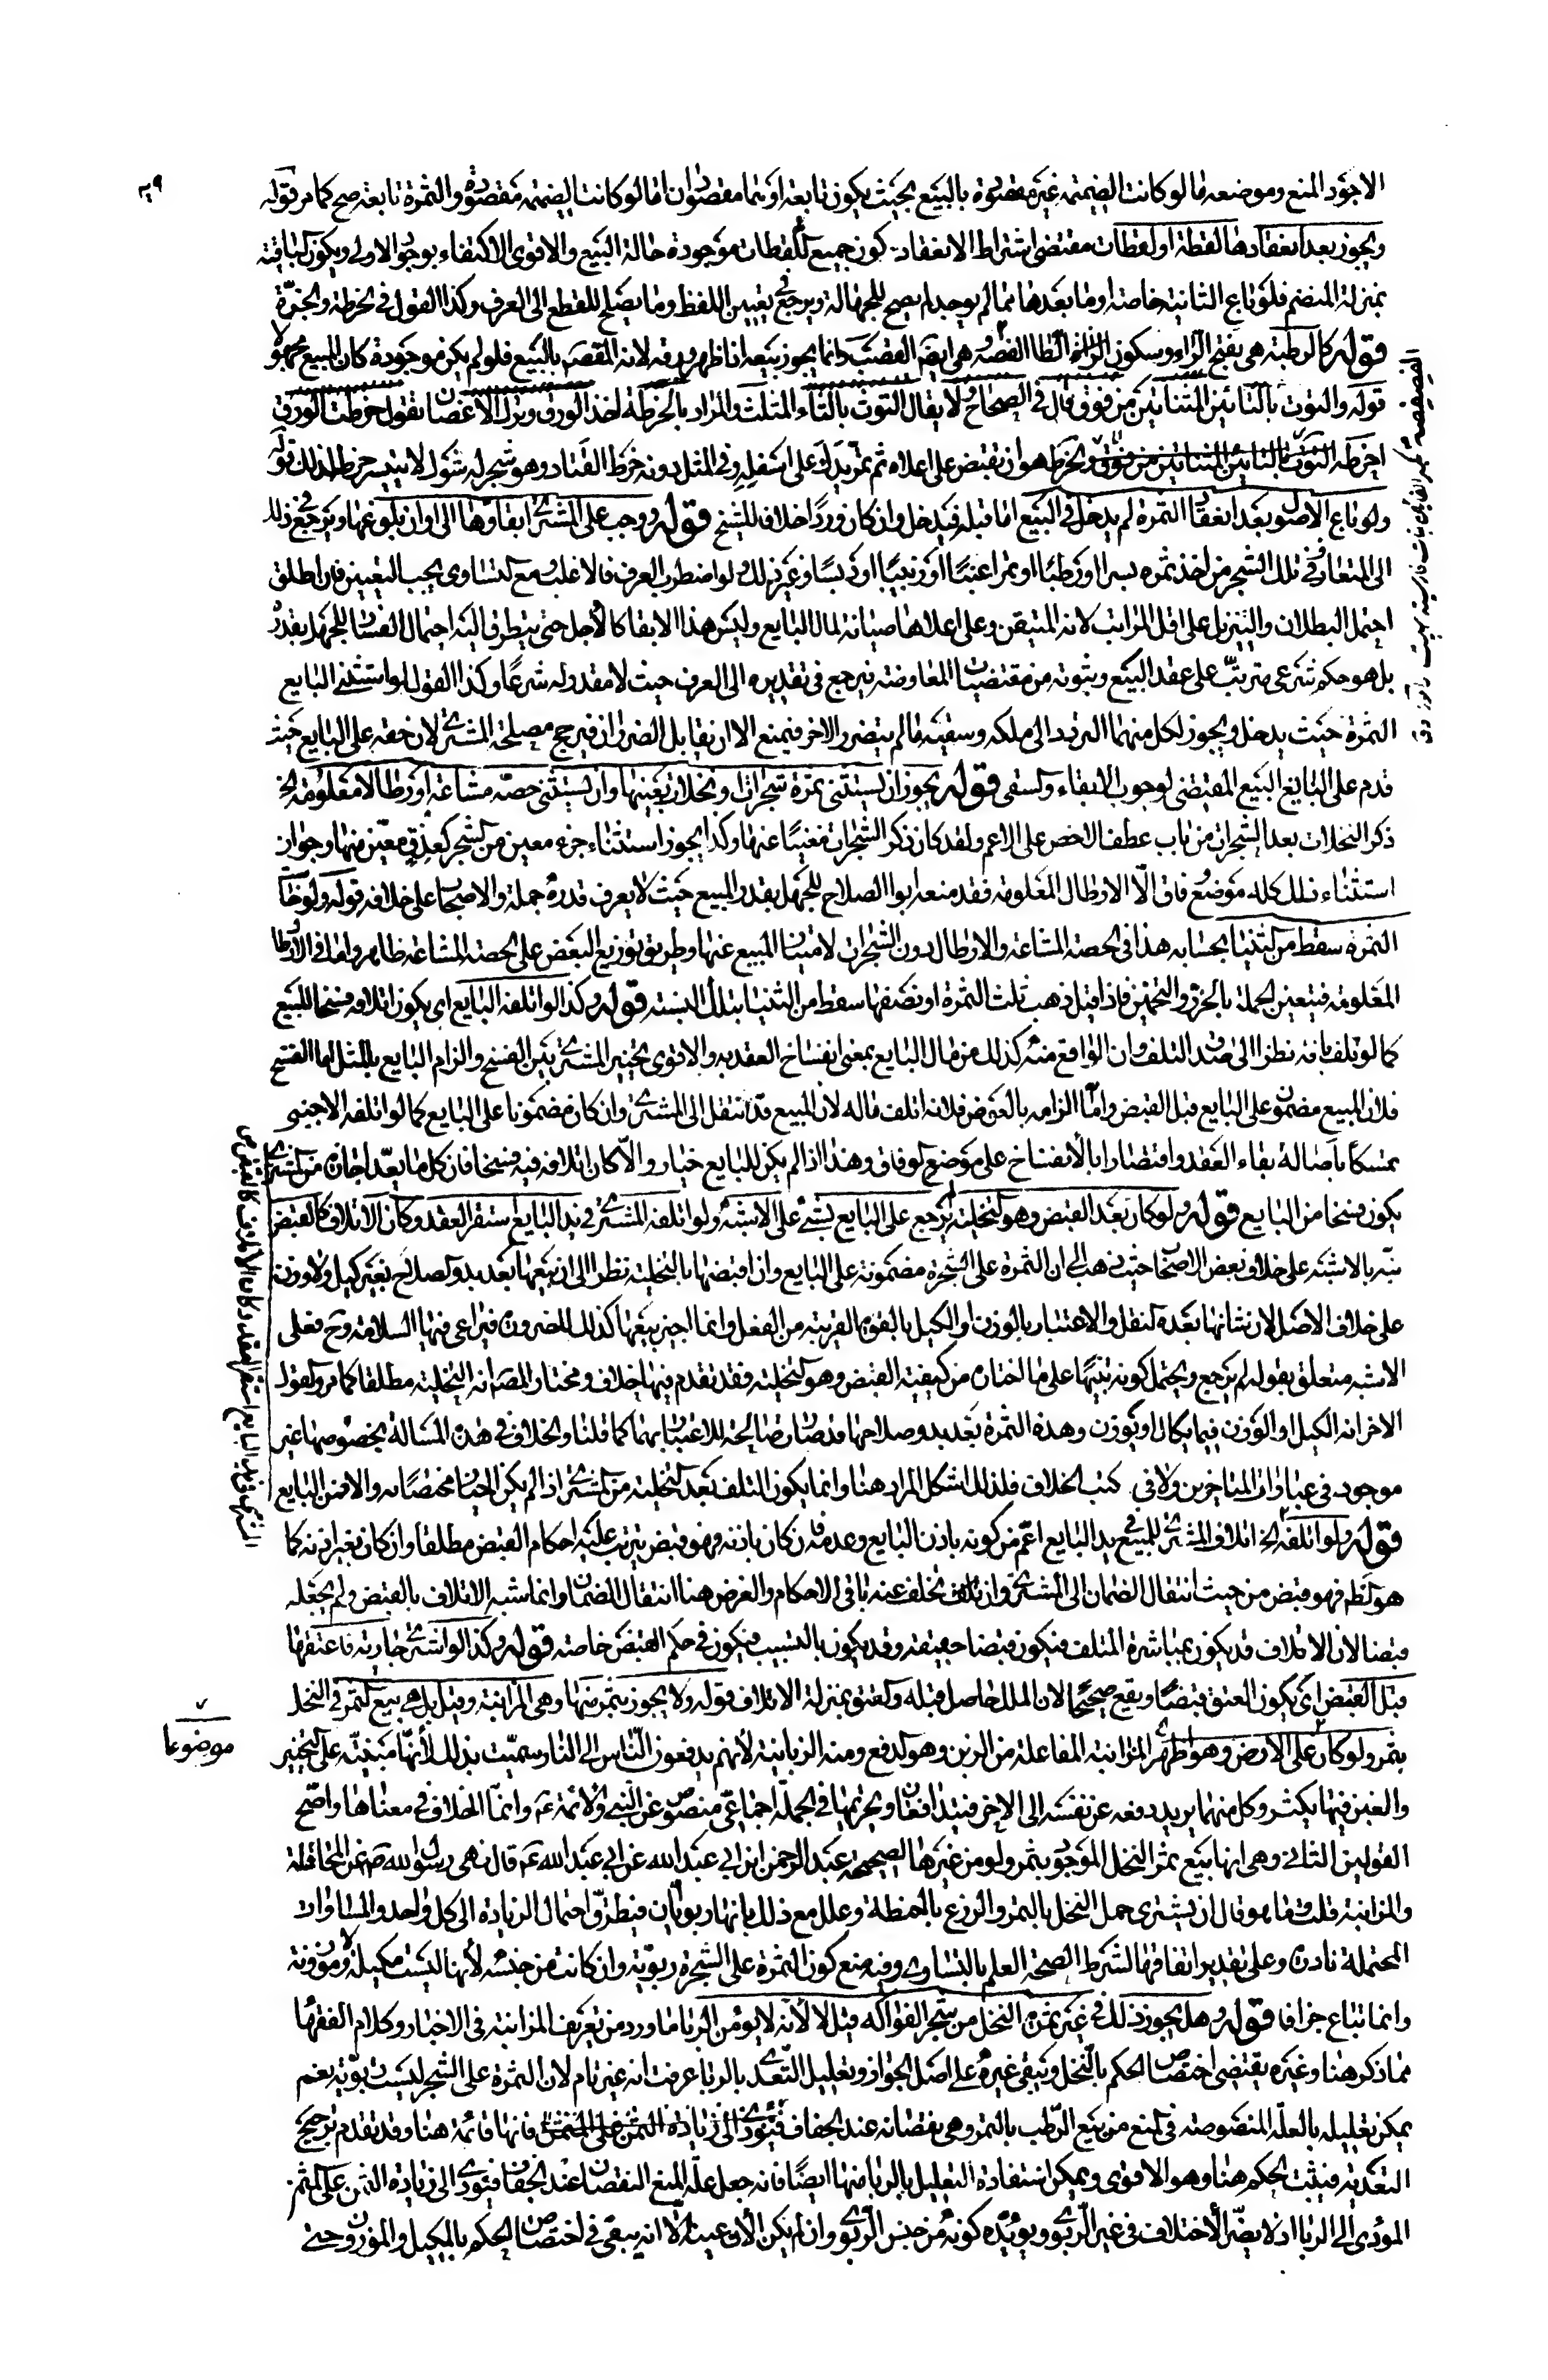 الاجود المنع وموضعه ما لو كانت الضميمة غير مقصودة بالبيع بحيث يكون تابعة او تما مقصودان اما لو كانت الضميمة مقصودة والثمرة تابعة صح كما مر قوله
ويجوز بعد انعقادها لقطة او لقطات مقتضى اشتراط الانعقاد كون جميع اللقطات موجودة حالة البيع والاقوى الاكتفاء بوجود الاولى ويكون الباقية
بمنزلة المنضم فلو باع الثانية خاصة او ما بعدها مما لم يوجد لم يصح للجهالة ويرجع في تعيين اللفظ وما يصلح للقطع الى العرف وكذا القول في الخرطة والجزة
قوله كالرطبة هي بفتح الراء وسكون الطاء الفصة وهي ايضا القضب وانما يجوز بيعه اذا ظهر ورقه لانه المقصد بالبيع فلو لم يكن موجودة كان المبيع مجهولا
قوله والتوت بالتائين المثناتين من فوق قال في الصحاح ولا يقال التوث بالثاء المثلث والمراد بالخرطة اخذ الورق وترك الاغصان تقول خرطت الورق
اخرطه والخرط هو ان تقبض على اعلاه ثم تمر يدك على اسفله وفي المثل دونه خرط القتاد وهو شجر له شوك لا يتيسر خرطه لذلك قوله
ولو باع الاصول بعد انعقاد الثمرة لم يدخل في البيع اما قبله فيدخل وان كان وردا خلافا للشيخ قوله ووجب على المشتري ابقاؤها الى اوان بلوغها ويرجع في ذلك
الى المتعارف في تلك الشجر من اخذ ثمره بسرا او رطبا او تمرا عنبا او زبيبا او دبسا وغير ذلك ولو اضطرب العرف فالاغلب ومع التساوي يجب التعيين فان اطلق
احتمل البطلان والتنزيل على اقل المراتب لانه المتيقن وعلى اعلاها صيانة لمال البايع وليس هذا الابقا كالاجل حتى يتطرق اليه احتمال الفساد للجهل بقدره
بل هو حكم شرعي مترتب على عقد البيع وثبوته من مقتضيات المعاوضة فيرجع في تقديره الى العرف حيث لا مقدر له شرعا وكذا القول لو استثنى البايع
الثمرة حيث يدخل ويجوز لكل منهما التردد الى ملكه وسقيه ما لم يتضرر الاخر فيمنع الا ان يقابل الضرران فيرجح مصلحة المشتري لان حقه على البايع حيث
قدم على البايع البيع المقتضى لوجوب الابقاء والسقى قوله يجوز ان يستثنى ثمرة شجرات او نخلات بعينها وان يستثنى حصة مشاعة او ارطالا معلومة الخ
ذكر النخلات بعد الشجرات من باب عطف الاخص على الاعم ولقد كان ذكر الشجرات مغنيا عنها وكذا يجوز استثناء جزء معين من الشجر كعذق معين منها وجواز
استثناء ذلك كله موضع وفاق الا الارطال المعلومة فقد منعه ابو الصلاح للجهل بقدر المبيع حيث لا يعرف قدره جملة والاصحاب على خلافه قوله ولو خاست
الثمرة سقط من الثنيا بحسابه هذا في الحصة المشاعة والارطال دون الشجرات لامتياز المبيع عنها وطريق توزيع البعض على الحصة المشاعة ظاهر واما في الارطال
المعلومة فيتعين الجملة بالخرص والتخمين فاذا قيل ذهب ثلث الثمرة او نصفها سقط من الثنيا بتلك النسبة قوله وكذا لو اتلفه البايع اي يكون اتلافه فسخا للبيع
كما لو تلف بافة نظرا الى صدق التلف وان الواقع منه كذلك من مال البايع بمعنى انفساخ العقد به والاقوى تخيير المشتري بين الفسخ والزام البايع بالمثل اما الفسخ
فلان المبيع مضمون على البايع قبل القبض واما الزامه بالعوض فلانه اتلف ماله لان المبيع قد انتقل الى المشتري وان كان مضمونا على البايع كما لو اتلفه الاجنبي
تمسكا باصالة بقاء العقد واقتصارا بالانفساخ على موضع الوفاق وهذا اذا لم يكن للبايع خيار والا كان اتلافه فيه فسخا فان كل ما يعد اجازة من المشتري
يكون فسخا من البايع قوله ولو كان بعد القبض وهو التخلية لم يرجع على البايع بشيء على الاشبه ولو اتلفه المشتري في يد البايع استقر العقد وكان الاتلاف كالقبض
نبه بالاشبه على خلاف بعض الاصحاب حيث ذهب الى ان الثمرة على الشجرة مضمونة على البايع وان اقبضها بالتخلية نظرا الى ان بيعها بعد بدو الصلاح بغير كيل ولا وزن
على خلاف الاصل لان شانها بعده النقل والاعتبار بالوزن والكيل بالقوة القريبة من الفعل وانما اجيز بيعها كذلك للضرورة فيراعى فيها السلامة وح فعلى
الاشبه متعلق بقوله لم يرجع ويحتمل كونه تنبيها على ما اختاره من كيفية القبض وهو التخلية فقد تقدم فيها خلاف ومختار المصم انه التخلية مطلقا كما مر والقول
الاخر انه الكيل او الوزن فيما يكال او يوزن وهذه الثمرة بعد بدو صلاحها قد صارت صالحة للاعتبار بهما كما قلنا والخلاف في هذه المسالة بخصوصها غير
موجود في عبارات المتاخرين ولا في كتب الخلاف فلذلك اشكل المراد هنا وانما يكون التلف بعد التخلية من المشتري اذا لم يكن الخيار مختصا به والا فمن البايع
قوله ولو اتلفه الخ اتلاف المشتري للمبيع في يد البايع اعم من كونه باذن البايع وعدمه فان كان باذنه فهو قبض يترتب عليه احكام القبض مطلقا وان كان بغير اذنه كما
هو الظ فهو قبض من حيث انتقال الضمان الى المشتري وان تخلف عنه باقي الاحكام والغرض هنا انتقال الضمان وانما شبه الاتلاف بالقبض ولم يجعله
قبضا لان الاتلاف قد يكون بمباشرة المتلف فيكون قبضا حقيقة وقد يكون بالتسبيب فيكون في حكم القبض خاصة قوله وكذا لو اشترى جارية فاعتقها
قبل القبض اي يكون العتق قبضا ويقع صحيحا لان الملك حاصل قبله والعتق بمنزلة الاتلاف قوله ولا يجوز بثمر منها وهي المزابنة وقيل بل هي بيع الثمر في النخل
بتمر ولو كان على الارض وهو اظهر المزابنة المفاعلة من الزبن وهو الدفع ومنه الزبانية لانهم يدفعون الناس الى النار سميت بذلك لانها مبنية على التخمين
والغبن فيها يكثر وكل منهما يريد دفعه عن نفسه الى الاخر فيتدافعان وتحريمها في الجملة اجماعي منصوص عن النبي والائمة عم وانما الخلاف في معناها واصح
القولين الثاني وهي انها بيع ثمر النخل الموجود بتمر ولو من غيرها لصحيحة عبد الرحمن ابن ابي عبد الله عن ابي عبد الله عم قال نهى رسول الله ص عن المحاقلة
والمزابنة قلت وما هو قال ان يشترى حمل النخل بالتمر والزرع بالحنطة وعلل مع ذلك بانهما ربويان فيتطرق احتمال الزيادة الى كل واحد والمساواة
المحتملة نادرة وعلى تقدير اتفاقها الشرط الصحة العلم بالتساوي وفيه منع كون الثمرة على الشجرة ربوية وان كانت من جنسه لانها ليست مكيلة ولا موزونة
وانما تباع جزافا قوله وهل يجوز ذلك في غير ثمرة النخل من شجر الفواكه قيل لا لانه لا يؤمن الربا ما ورد من تعريف المزابنة في الاخبار وكلام الفقهاء
مما ذكر هنا وغيره يقتضى اختصاص الحكم بالنخل وتبقى غيره على اصل الجواز وتعليل التعدي بالربا عرفت انه غير تام لان الثمرة على الشجر ليست ربوية نعم
يمكن تعليله بالعلة المنصوصة في المنع من بيع الرطب بالتمر وهي نقصانه عند الجفاف فانها قائمة هنا وقد تقدم ترجيح
التعدية فيثبت الحكم هنا وهو الاقوى ويمكن استفادة التعليل بالربا منها ايضا فانه جعل علة المنع النقصان عند الجفاف فيؤدى الى زيادة الثمن على المثمن
المؤدى الى الربا اذ لا يضر الاختلاف في غير الربوي ويؤيده كونه من جنس الربوي وان لم يكن الان عينه الا انه يبقى في اختصاص الحكم بالمكيل والموزون حتى
موضوعا